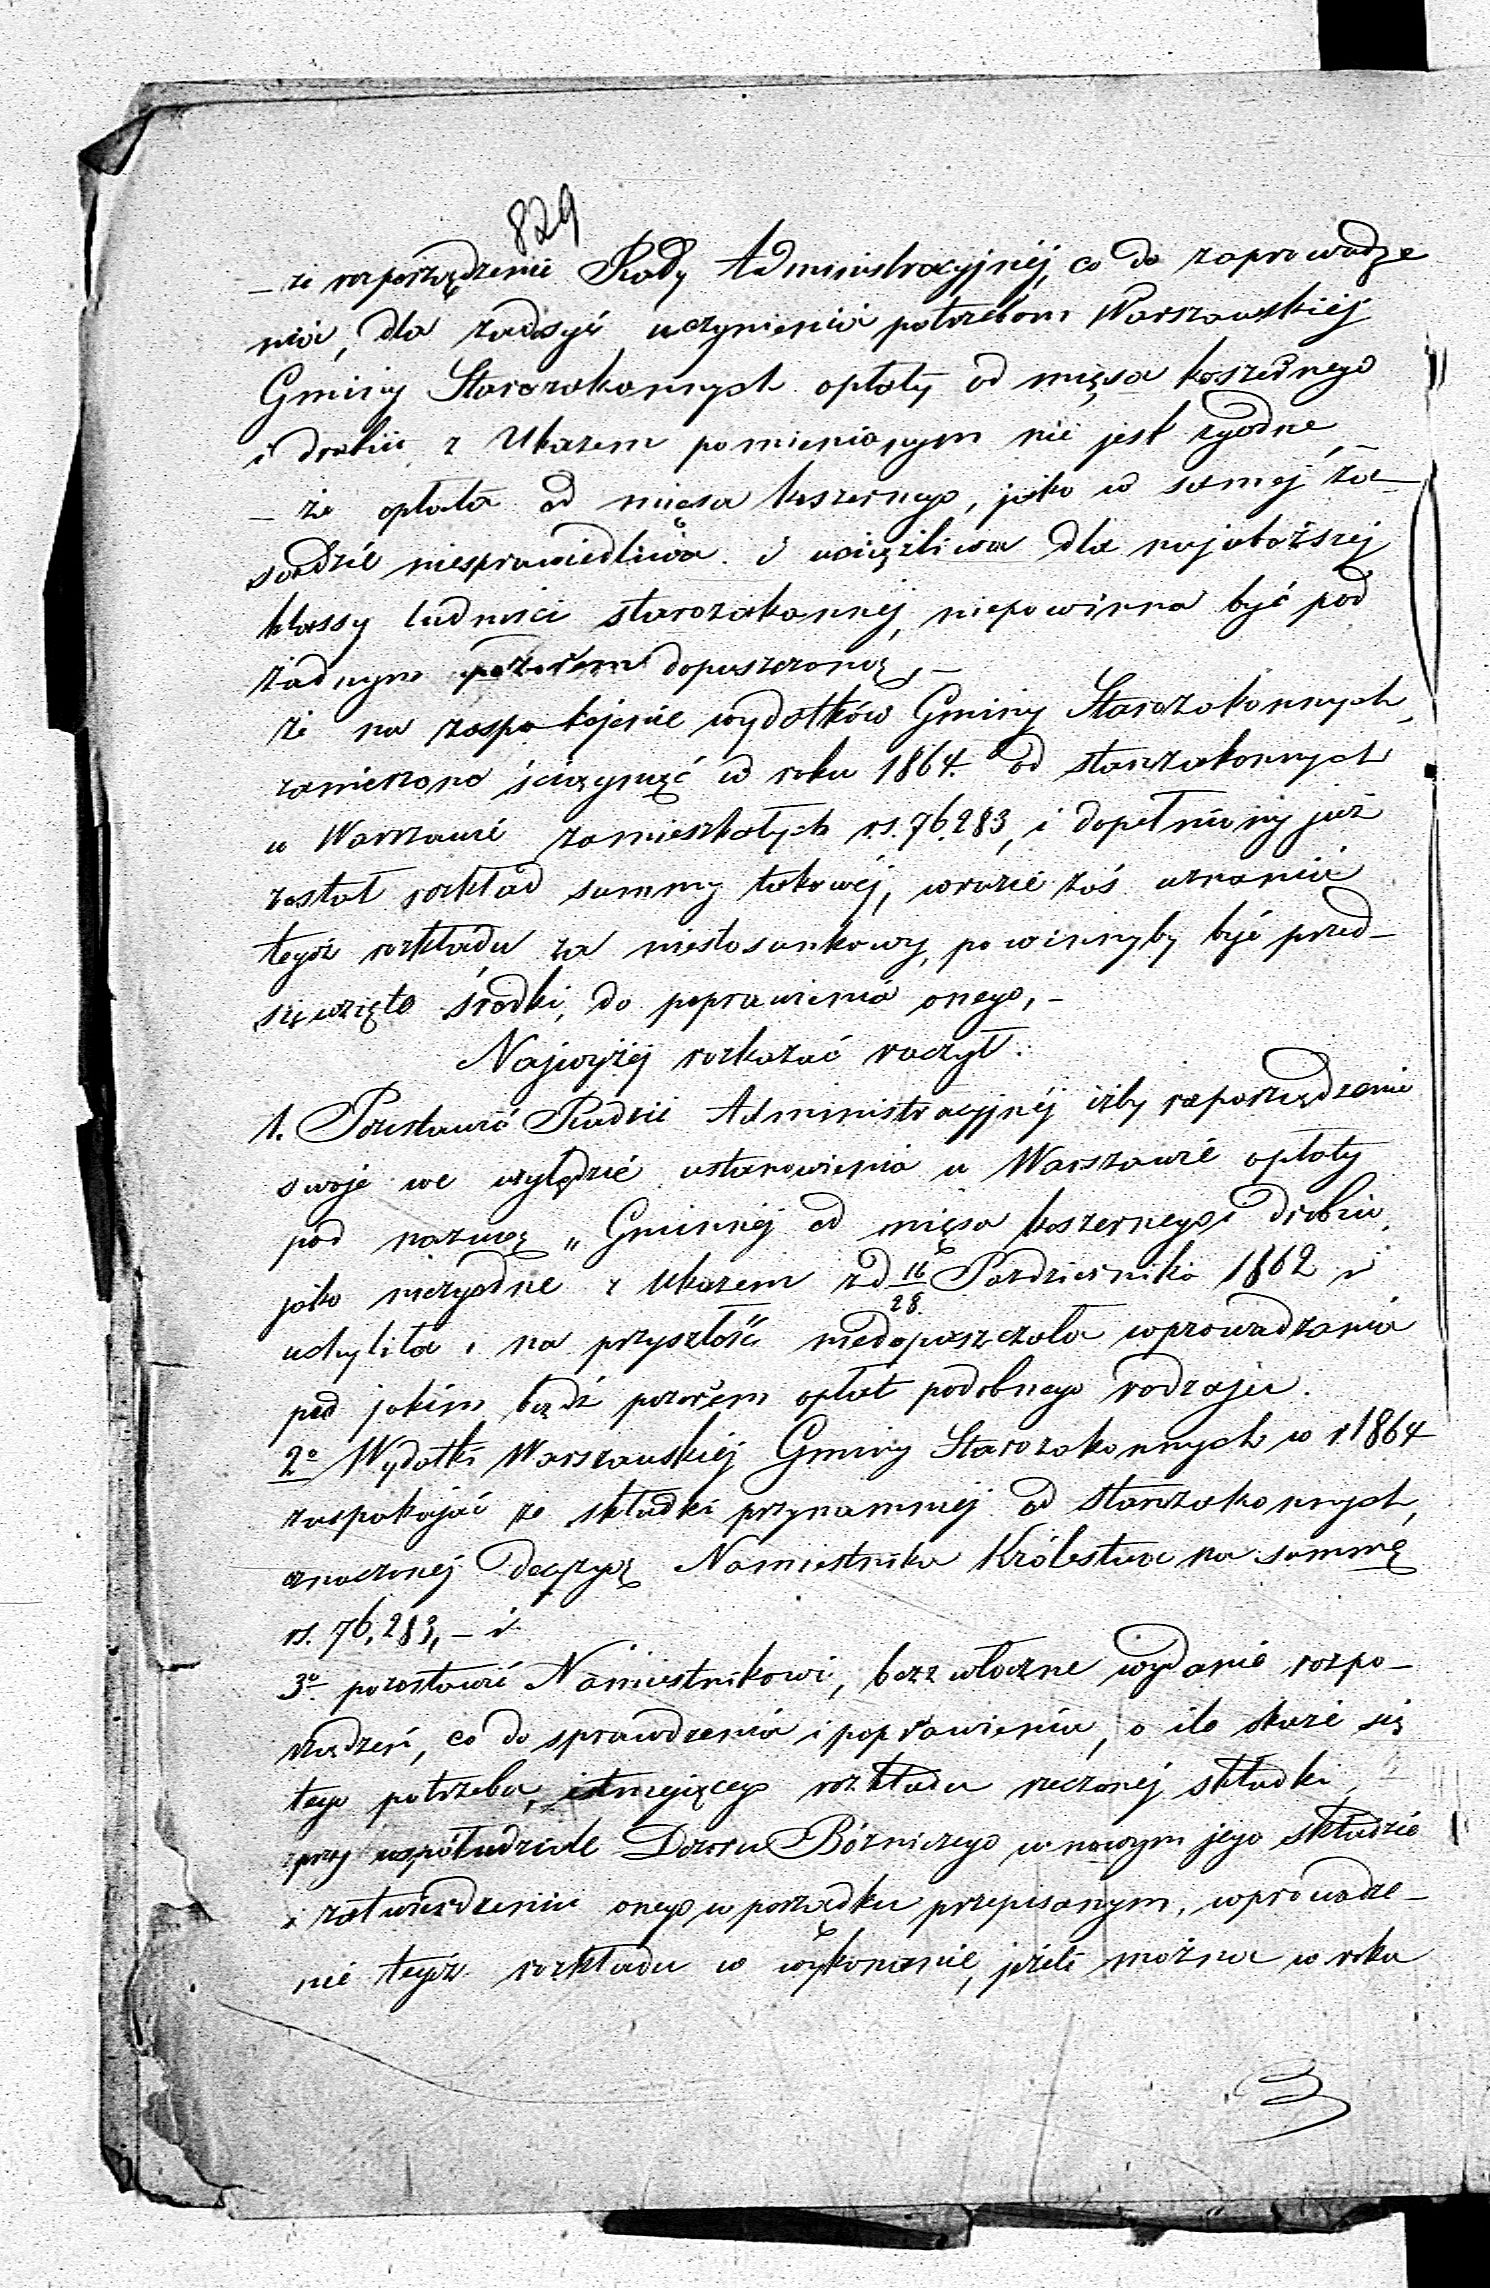 829
– że rozporządzenie Rady Administracyjnéj, co do zaprowadze
nia, dla zadosyć uczynienia potrzebom Warszawskiéj
Gminy Starozakonnych opłaty od mięsa koszernego
i drobiu, z Ukazem pomienionym nie jest zgodne, –
– że opłata od mięsa koszernego, jako w samej za–
sadzie niesprawiedliwa i uciążliwa dla najuboższej
klassy ludności starozakonnej, niepowinna być pod
żadnym pozorem dopuszczoną, –
że na zaspokojenie wydatków Gminy Starozakonnych,
zamierzono ściągnąć w roku 1864. od starozakonnych
w Warszawie zamieszkałych rs. 76.283, i dopełniony już
został rozkład summy takowéj, w razie zaś uznania
tegoż rozkładu za niestosunkowy, powinnyby być przed–
sięwzięte środki, do poprawienia onego, –
Najwyżéj rozkazać raczył:
1. Pozostawić Radzie Administracyjnéj iżby rozporządzenie
swoje we względzie ustanowienia w Warszawie opłaty
pod nazwą „Gminnéj od mięsa koszernego i drobiu,
jako niezgodne z Ukazem z d 16/28. Października 1862 r
uchyliła i na przyszłość niedopuszczała wprowadzania
pod jakim bądź pozorem opłat podobnego rodzaju.
2o Wydatki Warszawskiéj Gminy Starozakonnych w r. 1864
zaspokajać ze składki przynamniej od starozakonnych,
oznaczonéj decyzyą Namiestnika Królestwa na summę
rs. 76,283, – i
3o. pozostawić Namiestnikowi, bezzwłoczne wydanie rozpo–
rządzeń, co do sprawdzenia i poprawienia, o ile okaże się
tego potrzeba, istniejącego rozkładu rzeczonéj składki,
przy współudziale Dozoru Bóżniczego w nowym jego składzie
i zatwierdzeniu onego w porządku przepisanym, wprowadze–
nie tegoż rozkładu w wykonanie, jeżeli można w roku